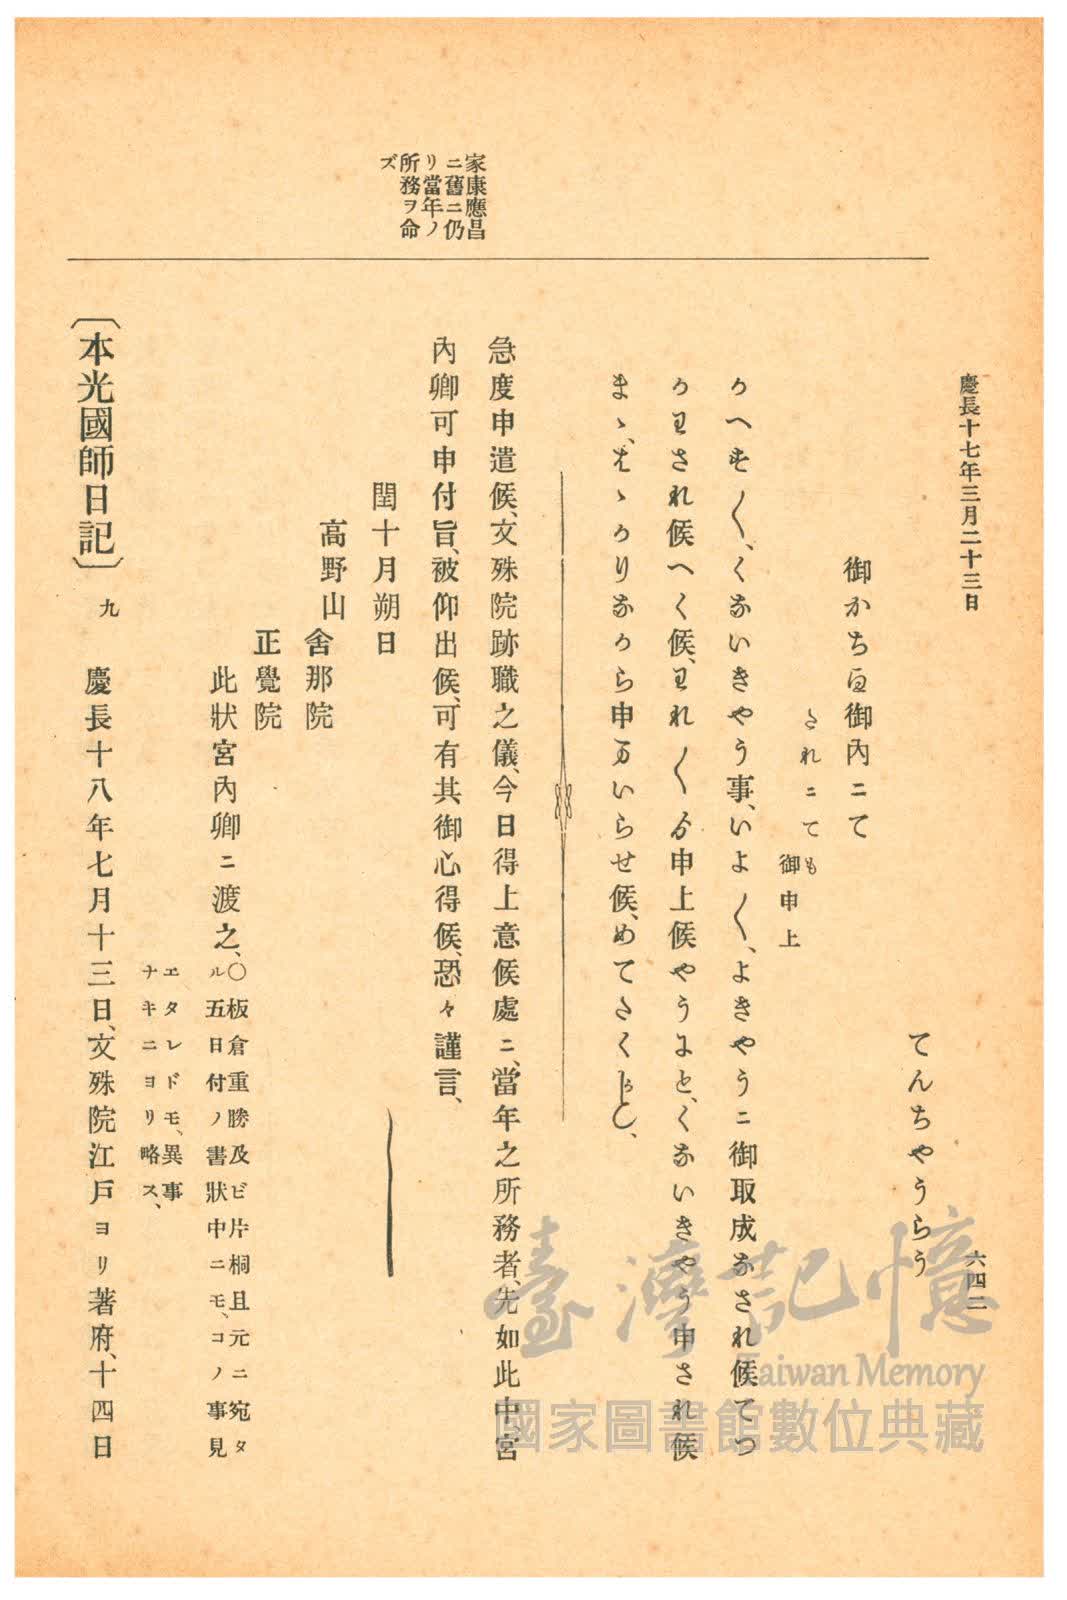 慶長十七年三月二十三日
六四二
家康應昌
ニ舊ニ仍
リ當年ノ
所務ヲ命
ズ
てんちやうらう
御かちゟ御內ニて
たれニても
御申上
かへす〱、くないきやう事、いよ〱、よきやうニ御取成なされ候てつ
かわされ候へく候、われ〱ゟ申上候やうにと、くないきやう申され候
まゝ、はゝかりなから申まいらせ候、めてたくかしく、
急度申遣候、文殊院跡職之儀、今日得上意候處ニ、當年之所務者、先如此中、宮
內卿可申付旨、被仰出候、可有其御心得候、恐々謹言、
閏十月朔日
高野山
舍那院
正覺院
此狀宮內卿ニ渡之、
〇板倉重勝及ビ片桐且元ニ宛タ
ル五日付ノ書狀中ニモ、コノ事見
エタレドモ、異事
ナキニヨリ略ス、
〔本光國師日記〕九 慶長十八年七月十三日、文殊院江戶ヨリ著府、十四日
臺灣記憶
Taiwan Memory
國家圖書館數位典藏